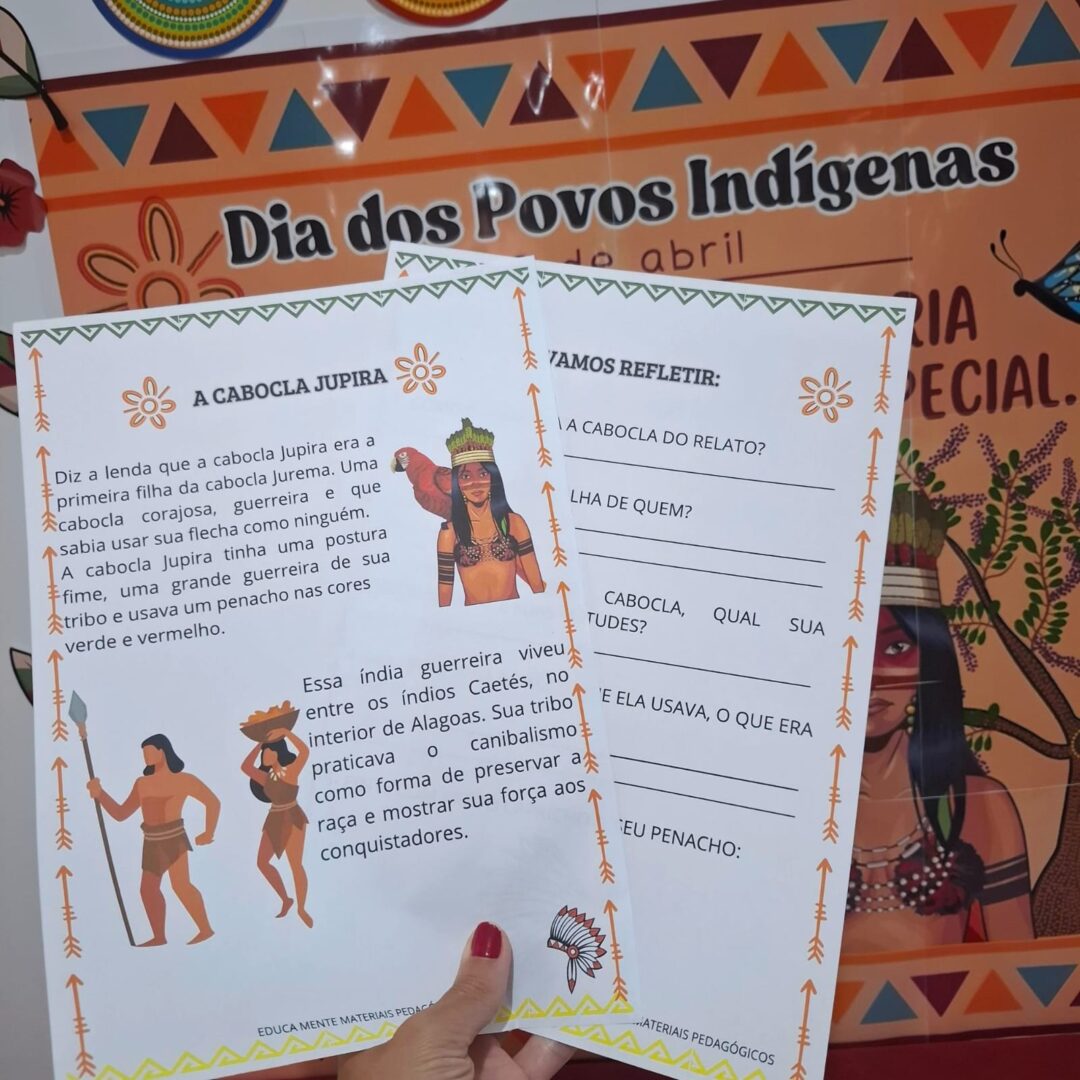 Dia dos Povos Indígenas
de abril
RIA
PECIAL.
A CABOCLA JUPIRA
Diz a lenda que a cabocla Jupira era a
primeira filha da cabocla Jurema. Uma
cabocla corajosa, guerreira e que
sabia usar sua flecha como ninguém.
A cabocla Jupira tinha uma postura
fime, uma grande guerreira de sua
tribo e usava um penacho nas cores
verde e vermelho.
Essa índia guerreira viveu
entre os índios Caetés, no
interior de Alagoas. Sua tribo
praticava o canibalismo
como forma de preservar a
raça e mostrar sua força aos
conquistadores.
EDUCA MENTE MATERIAIS PEDAGÓ
VAMOS REFLETIR:
A CABOCLA DO RELATO?
LHA DE QUEM?
CABOCLA, QUAL SUA
TUDES?
E ELA USAVA, O QUE ERA
SEU PENACHO:
MATERIAIS PEDAGÓGICOS